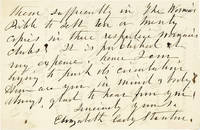 them sufficiently in The Woman's
Bible to sell ten or twenty
copies in their respective woman's
clubs? It is published at
my expense, hence I am
trying to push its circulation.
How are you in mind & body?
Always glad to hear from you.
Sincerely yours
Elizabeth Cady Stanton